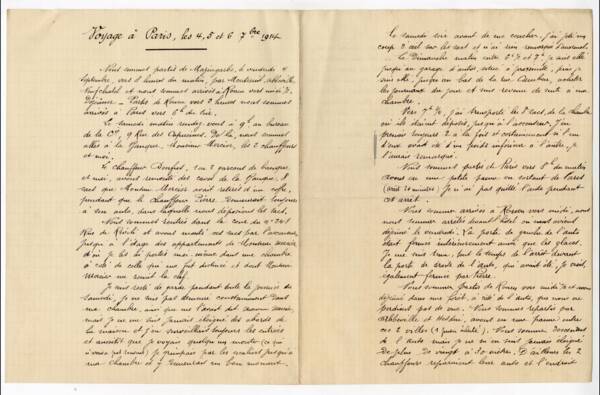 Voyage à Paris, les 4, 5 et 6 7bre 1914
Nous sommes partis de Mazingarbe, le vendredi 4
Septembre, vers 8 heures du matin, par Montreuil, Abbeville,
Neufchatel et nous sommes arrivés à Rouen vers midi ½.
Déjeuner - Partis de Rouen vers 2 heures nous sommes
arrivés à Paris vers 6h du soir.
Le samedi matin rendez-vous à 9h au bureau
de la Cie, 9 Rue des Capucines. De là, nous sommes
allés à la Banque, Monsieur Mercier, les 2 chauffeurs
et moi.
Le chauffeur, un garçon de banque
et moi, avons remonté des caves de la Banque, 2
sacs que Monsieur Mercier avait retirés d'un coffre,
pendant que le chauffeur Pierre demeurait toujours
à son auto, dans laquelle nous déposions les sacs.
Nous sommes rentrés dans la cour du nº 241
Rue de Rivoli et avons monté ces sacs par l'ascenseur
jusqu'à l'étage des appartements de Monsieur Mercier
où je les ai portés moi-même dans une chambre
à côté de celle qui me fut destinée et dont Monsieur
Mercier me remit la clef.
Je suis resté de garde pendant toute la journée du
samedi, je ne suis pas demeuré constamment dans
ma chambre, ainsi que me l'avait dit Monsieur Mercier,
mais je ne me suis jamais éloigné des abords de
la maison et j'en surveillais toujours les entrées
et aussitôt que je voyais quelqu'un monter (ce qui
n'arriva que rarement) je grimpais par les escaliers jusqu'à
ma chambre et j'y demeurais un bon moment.
Le samedi soir avant de me coucher, j'ai jeté un
coup d'œil sur les sacs et n'ai rien remarqué d'anormal.
Le Dimanche matin entre 6h ½ et 7h, je suis allé
jusqu'au garage d'autos situé à proximité, puis je
suis allé, jusqu'au bas de la rue Cambon, acheter
les journaux du jour et suis revenu de suite à ma
chambre.
Vers 7h ¾, j'ai transporté les 2 sacs de la chambre
où ils étaient déposés, jusqu'à l'ascenseur. J'en
prenais toujours 2 à la fois et certainement si l'un
d'eux avait été d'un poids inférieur à l'autre, je
l'aurais remarqué.
Nous sommes partis de Paris vers 8h du matin
avons eu une petite panne en sortant de Paris
(arrêt 20 minutes). Je n'ai pas quitté l'auto pendant
cet arrêt.
Nous sommes arrivés à Rouen vers midi, nous
nous sommes arrêtés devant l'hôtel où nous avions
déjeuné le vendredi. La porte de gauche de l'auto
était fermée intérieurement ainsi que les glaces.
Je me suis tenu, tout le temps de l'arrêt devant
la porte de droite de l'auto, qui avait été, je crois,
également fermée par Pierre.
Nous sommes partis de Rouen vers midi ½ et avons
déjeuné dans une forêt, à côté de l'auto, que nous ne
perdions pas de vue. Nous sommes repartis par
Abbeville et Hesdin, avons eu une panne entre
ces 2 villes (1 pneu éclaté). Nous sommes descendus
de l'auto mais je ne m'en suis jamais éloigné
de plus de vingt à 30 mètres. D'ailleurs les 2
chauffeurs réparaient leur auto et l'endroit